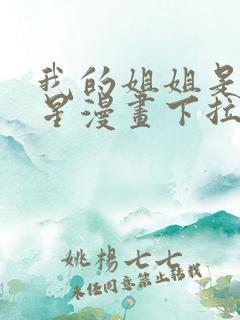 我的姐姐是
星漫畫下拉
姚楊七七
未经同意禁止转载